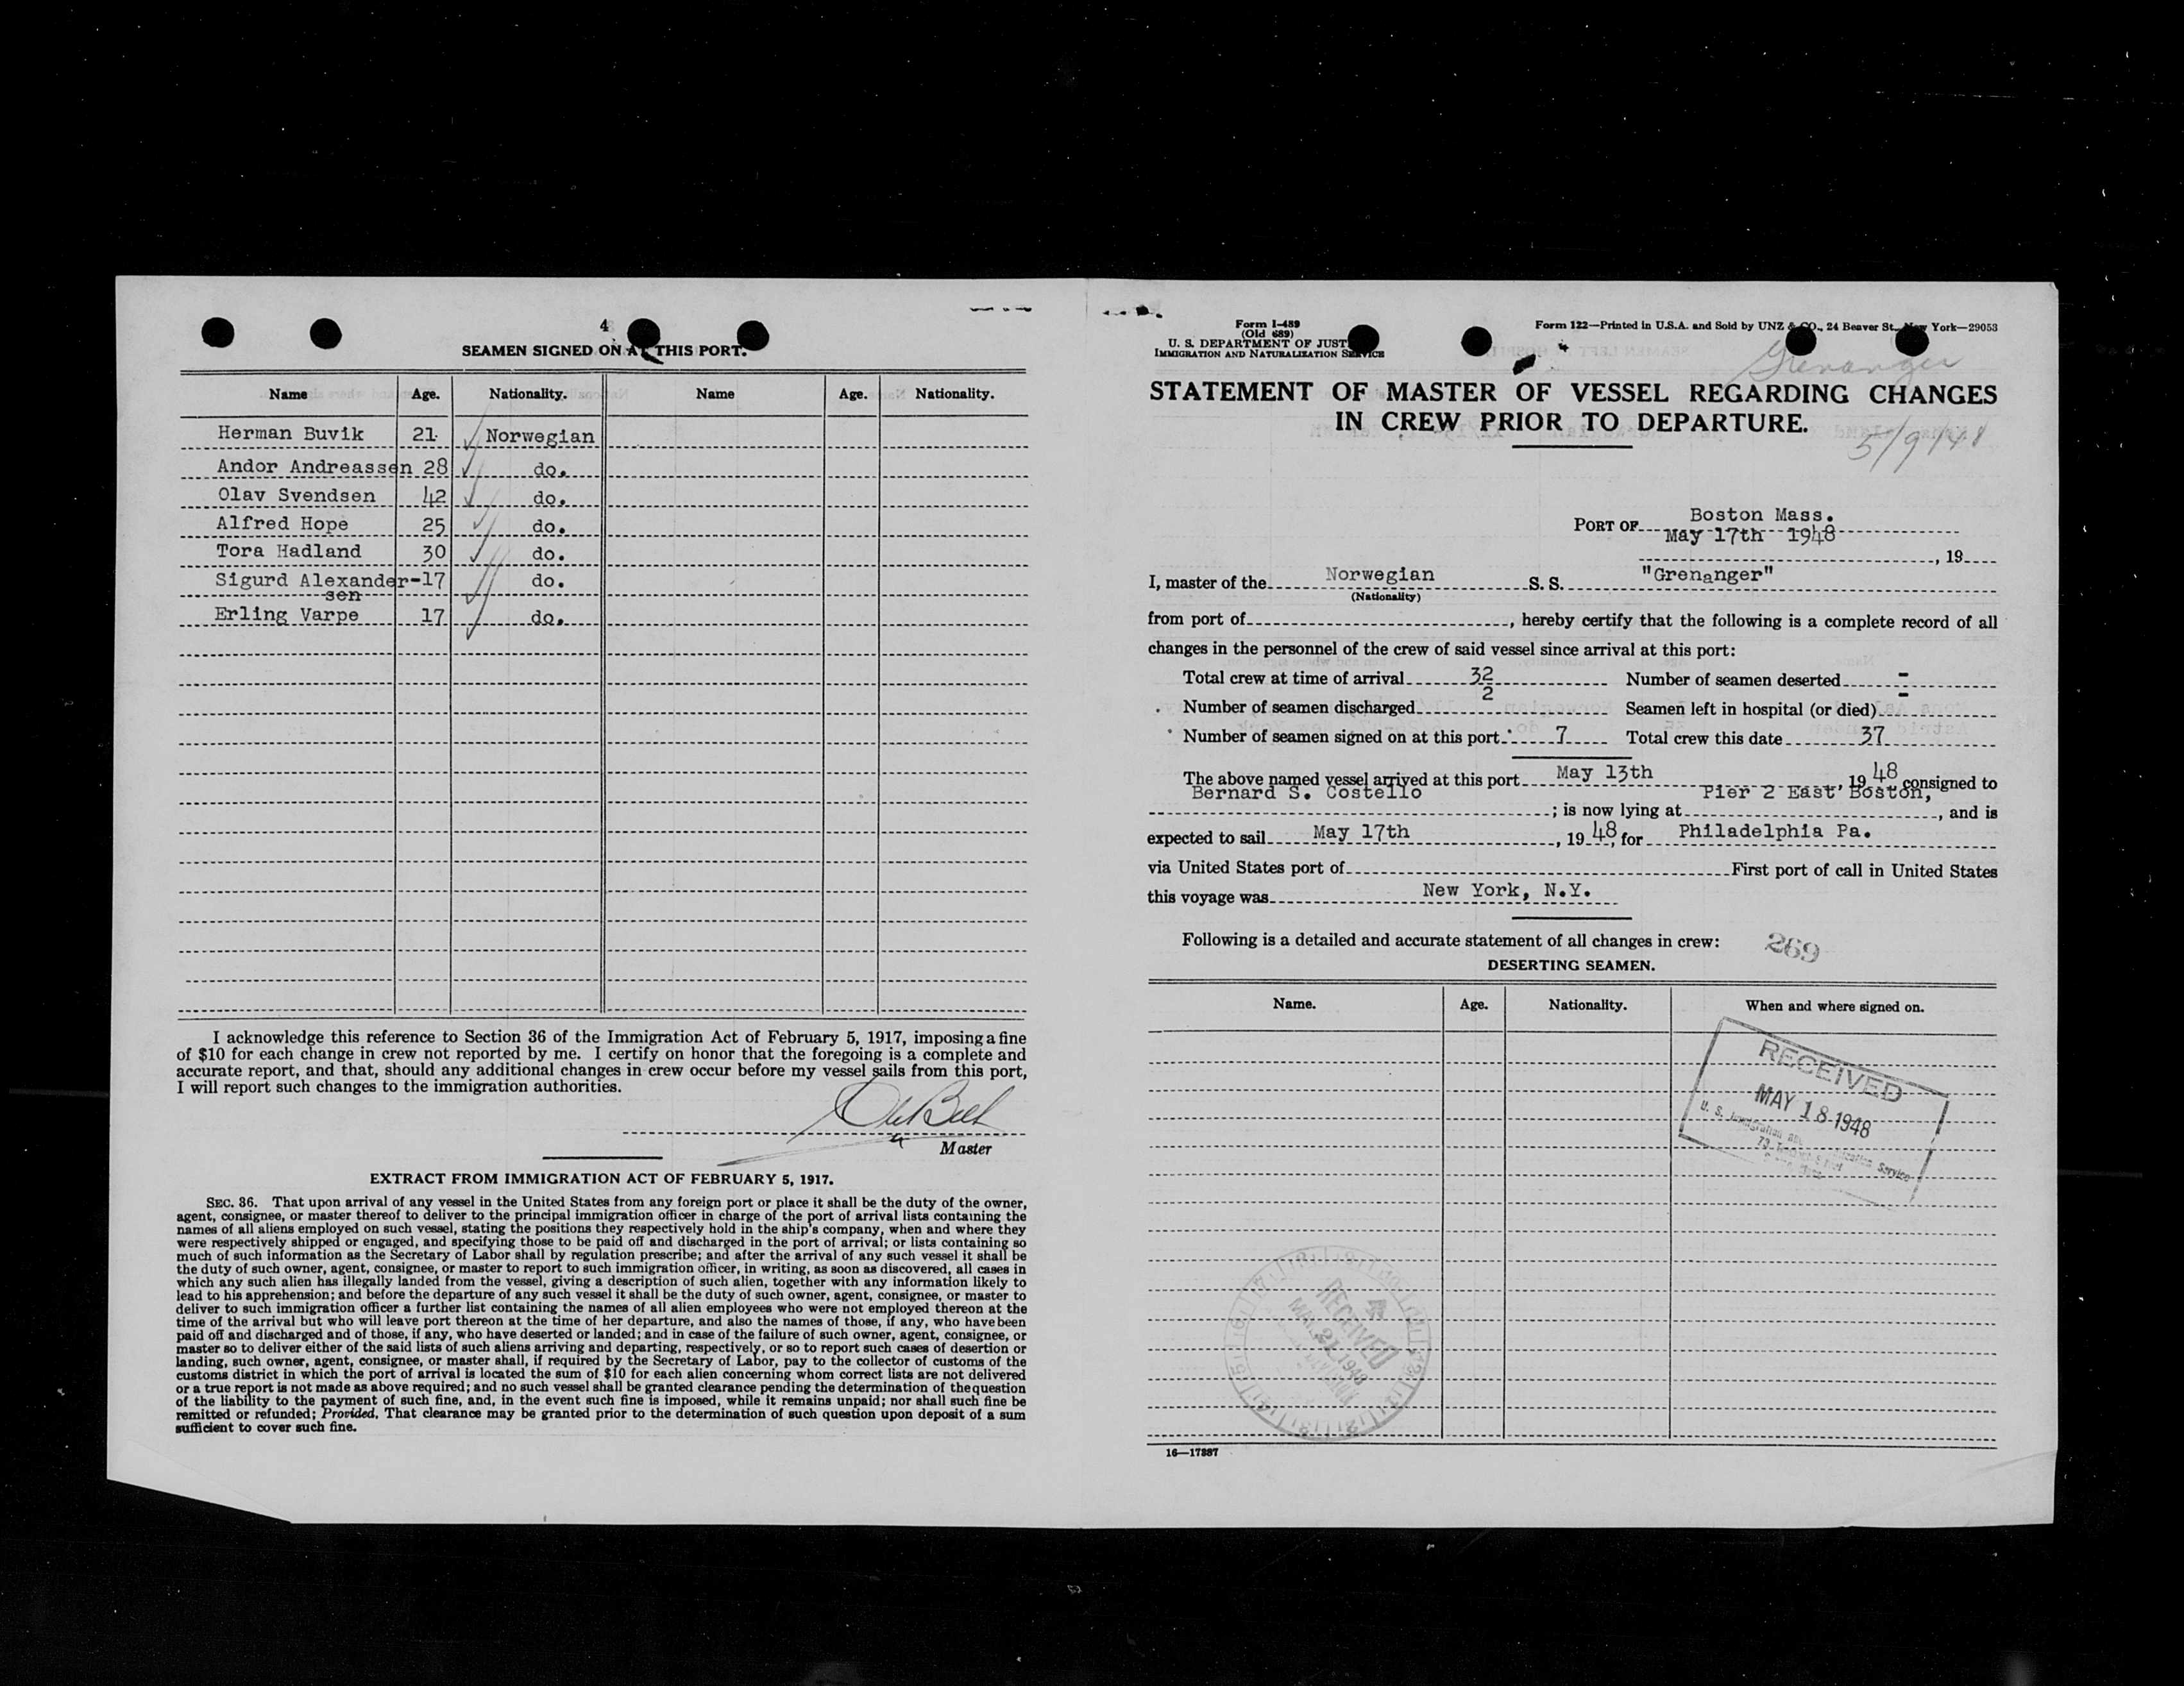 4
SEAMEN SIGNED ON AT THIS PORT.
Name Age. Nationality. Name Age. Nationality.
Herman Buvik 21 Norwegian
Andor Andreassen 28 do.
Olav Svendsen 42 do.
Alfred Hope 25 do.
Tora Hadland 30 do.
Sigurd Alexander-17 do.
sen
Erling Varpe 17 do.
I acknowledge this reference to Section 36 of the Immigration Act of February 5, 1917, imposing a fine
of $10 for each change in crew not reported by me. I certify on honor that the foregoing is a complete and
accurate report, and that, should any additional changes in crew occur before my vessel sails from this port,
I will report such changes to the immigration authorities.
Master
EXTRACT FROM IMMIGRATION ACT OF FEBRUARY 5, 1917.
SEC. 36. That upon arrival of any vessel in the United States from any foreign port or place it shall be the duty of the owner,
agent, consignee, or master thereof to deliver to the principal immigration officer in charge of the port of arrival lists containing the
names of all aliens employed on such vessel, stating the positions they respectively hold in the ship's company, when and where they
were respectively shipped or engaged, and specifying those to be paid off and discharged in the port of arrival; or lists containing so
much of such information as the Secretary of Labor shall by regulation prescribe; and after the arrival of any such vessel it shall be
the duty of such owner, agent, consignee, or master to report to such immigration officer, in writing, as soon as discovered, all cases in
which any such alien has illegally landed from the vessel, giving a description of such alien, together with any information likely to
lead to his apprehension; and before the departure of any such vessel it shall be the duty of such owner, agent, consignee, or master to
deliver to such immigration officer a further list containing the names of all alien employees who were not employed thereon at the
time of the arrival but who will leave port thereon at the time of her departure, and also the names of those, if any, who have been
paid off and discharged and of those, if any, who have deserted or landed; and in case of the failure of such owner, agent, consignee, or
master so to deliver either of the said lists of such aliens arriving and departing, respectively, or so to report such cases of desertion or
landing, such owner, agent, consignee, or master shall, if required by the Secretary of Labor, pay to the collector of customs of the
customs district in which the port of arrival is located the sum of $10 for each alien concerning whom correct lists are not delivered
or a true report is not made as above required; and no such vessel shall be granted clearance pending the determination of the question
of the liability to the payment of such fine, and, in the event such fine is imposed, while it remains unpaid; nor shall such fine be
remitted or refunded; Provided, That clearance may be granted prior to the determination of such question upon deposit of a sum
sufficient to cover such fine.
Form I-489
(Old 689)
U. S. DEPARTMENT OF JUSTICE
IMMIGRATION AND NATURALIZATION SERVICE
Form 122—Printed in U.S.A. and Sold by UNZ & CO., 24 Beaver St., New York—29053
Grenanger
STATEMENT OF MASTER OF VESSEL REGARDING CHANGES
IN CREW PRIOR TO DEPARTURE.
5/9/48
PORT OF Boston Mass.
May 17th 1948
, 19
I, master of the Norwegian S. S. "Grenanger"
(Nationality)
from port of , hereby certify that the following is a complete record of all
changes in the personnel of the crew of said vessel since arrival at this port:
Total crew at time of arrival 32 Number of seamen deserted -
Number of seamen discharged 2 Seamen left in hospital (or died) -
Number of seamen signed on at this port 7 Total crew this date 37
The above named vessel arrived at this port May 13th , 19 48 consigned to
Bernard S. Costello ; is now lying at Pier 2 East Boston, , and is
expected to sail May 17th , 19 48, for Philadelphia Pa.
via United States port of First port of call in United States
this voyage was New York, N.Y.
Following is a detailed and accurate statement of all changes in crew:
269
DESERTING SEAMEN.
Name. Age. Nationality. When and where signed on.
RECEIVED
MAY 18 1948
U. S. Immigration Service
RECEIVED
21 1948
16—17887